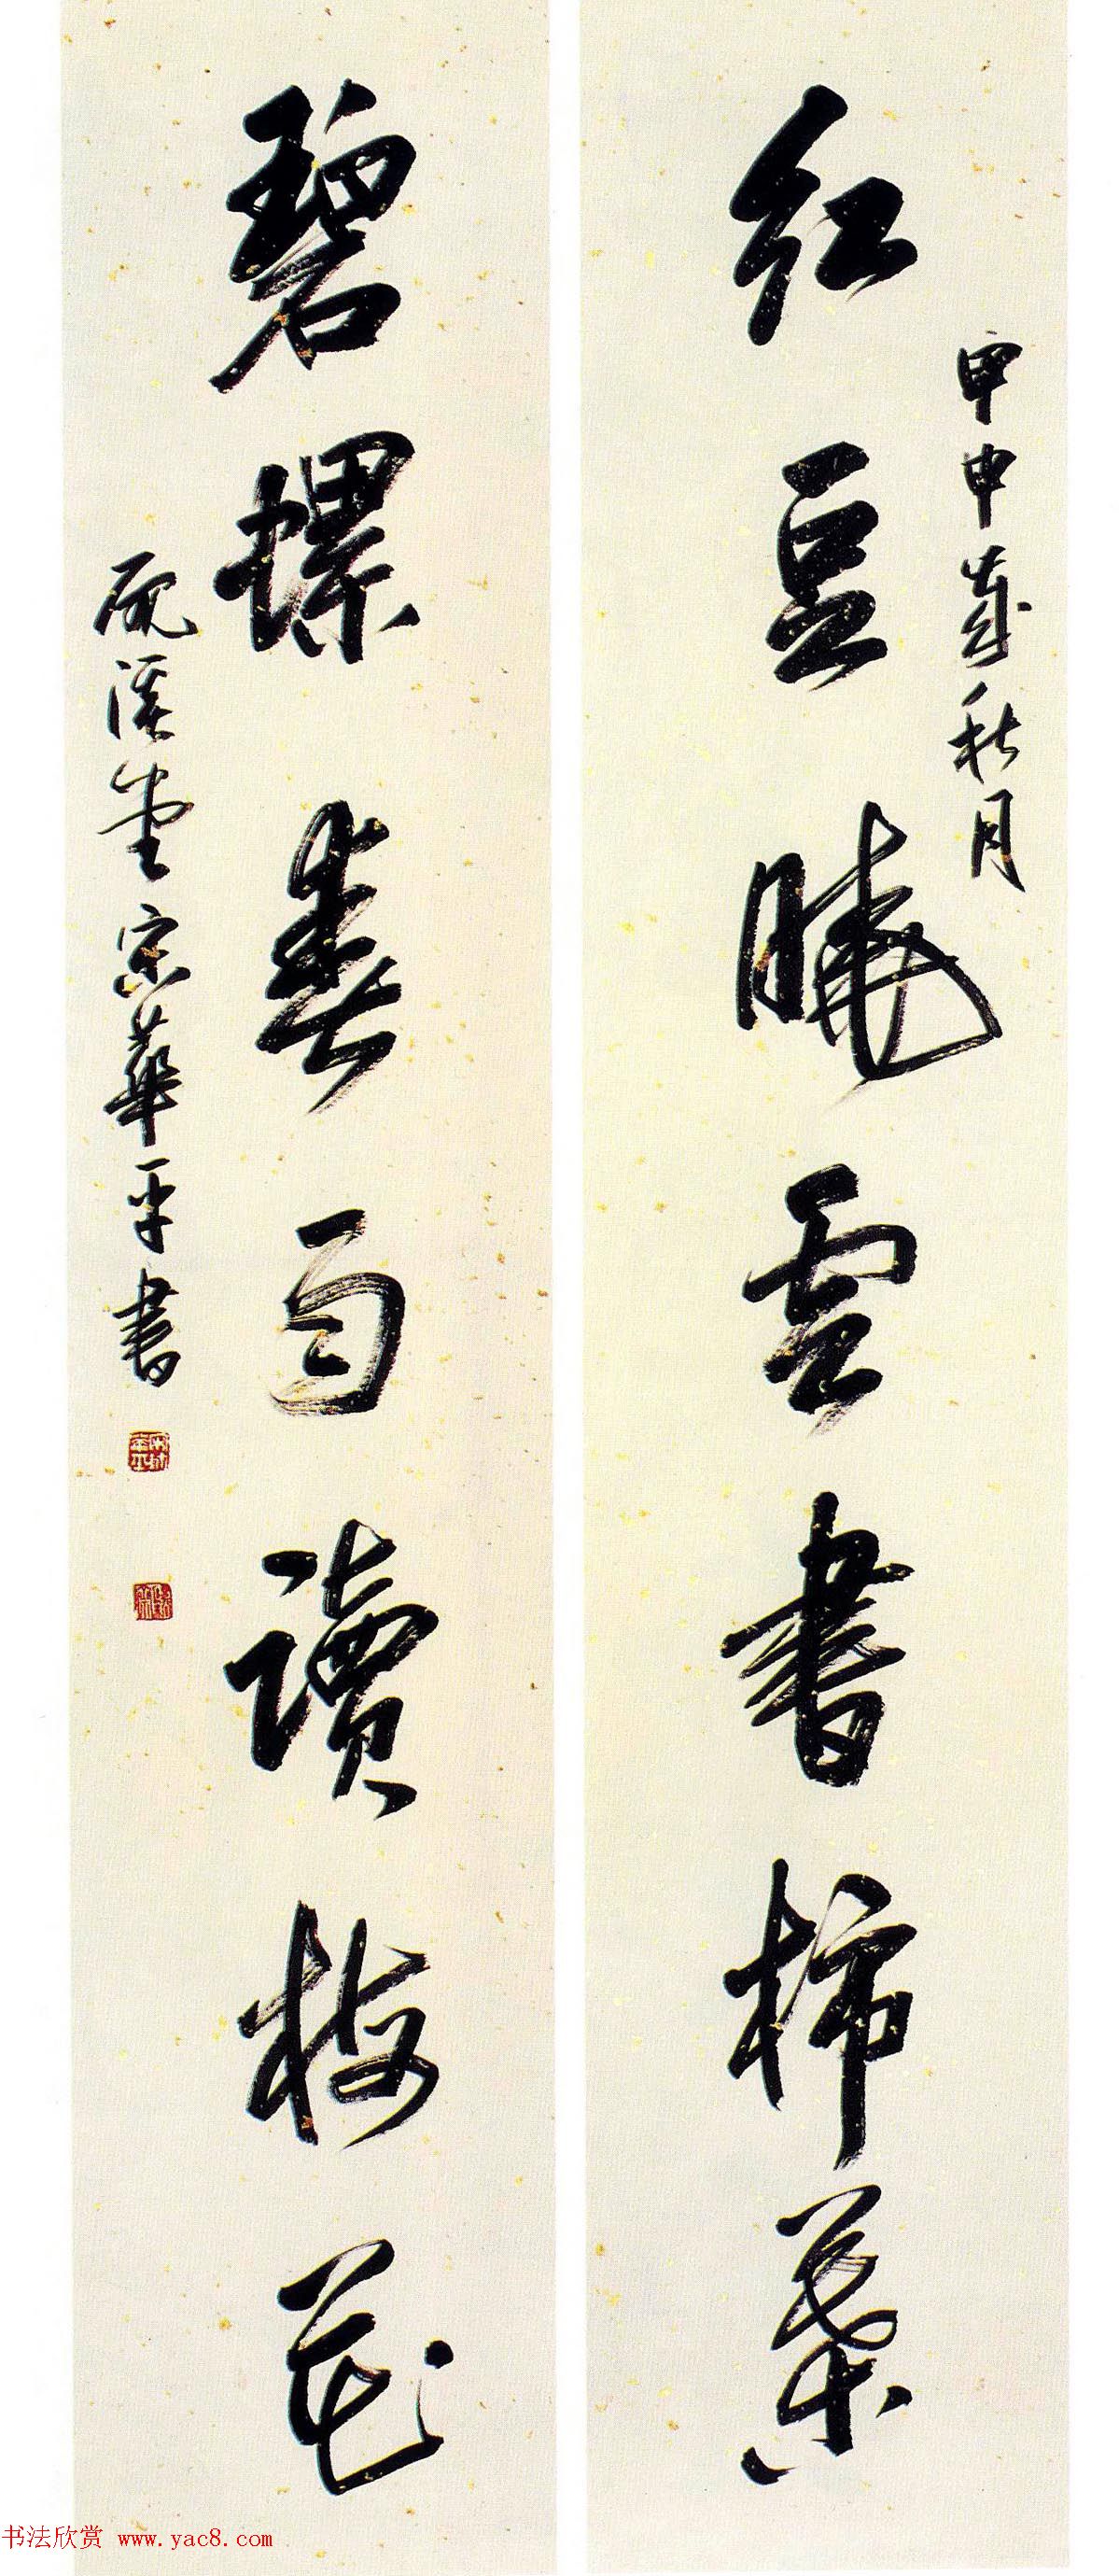 紅豆曉雲書柿葉
甲申歲秋月
碧螺春雨讀梅花
硯溪堂宋華平書
书法欣赏 www.yac8.com